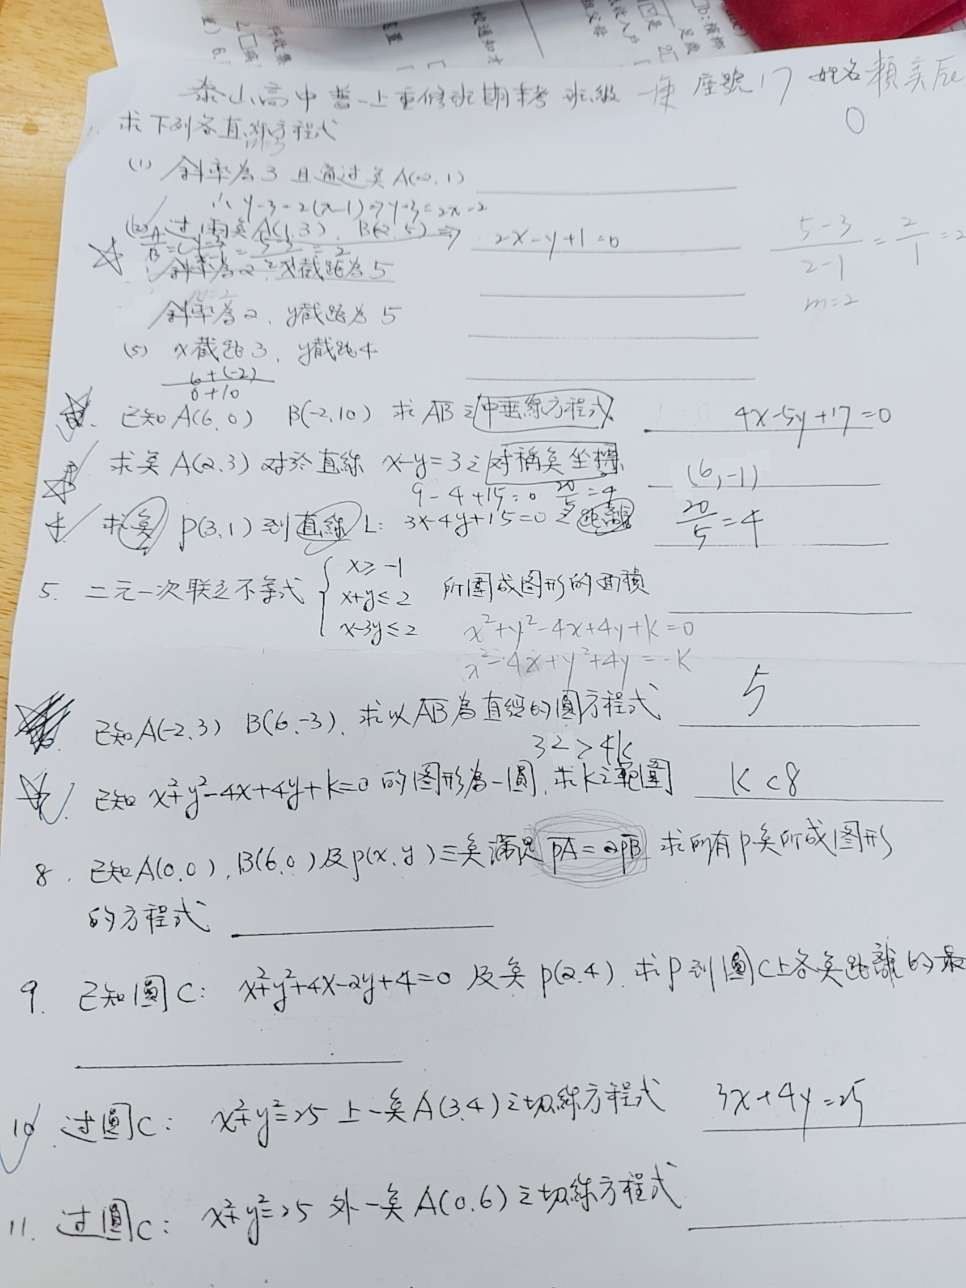 泰山高中 普一上重修班期末考 班級 座號 17 姓名 賴
0
求下列各直線方程式
(1) 斜率為 3 且通過點 A(2,1)
∴ y-3=2(x-1)⇒y-3=2x-2
(2) 过兩點 A(1,3)、B(2,5)⇒ 2x-y+1=0
5-3
2-1 = 2/1 =2
斜率為 2 x截距為 5
m=2
斜率為 2、y截距为 5
(5) x截距 3、y截距 4
6+(-2)
0+10
已知 A(6,0) B(-2,10) 求 AB 之中垂線方程式 4x-5y+17=0
求點 A(2,3) 对於直線 x-y=3 之对稱點坐標 (6,-1)
9-4+15=0 20/5=4
4 求點 P(3,1) 到直線 L: 3x-4y+15=0 之距離 20/5=4
5. 二元一次联立不等式 { x≥-1
x+y≤2 所圍成图形的面積
x-3y≤2
x²+y²-4x+4y+k=0
x²-4x+y²+4y=-k
已知 A(-2,3) B(6,-3)、求以 AB 為直徑的圓方程式 5
32>4k
已知 x²+y²-4x+4y+k=0 的图形為一圓,求k之範圍 k<8
8. 已知 A(0,0),B(6,0)及p(x,y)三點滿足 PA=2PB 求所有P點所成图形
的方程式
9. 已知圓C: x²+y²+4x-2y+4=0 及點 p(2,4)、求P到圓C上各點距離的最
10. 过圓C: x²+y²=25 上一點 A(3,4) 之切線方程式 3x+4y=25
11. 过圓C: x²+y²=25 外一點 A(0,6) 之切線方程式